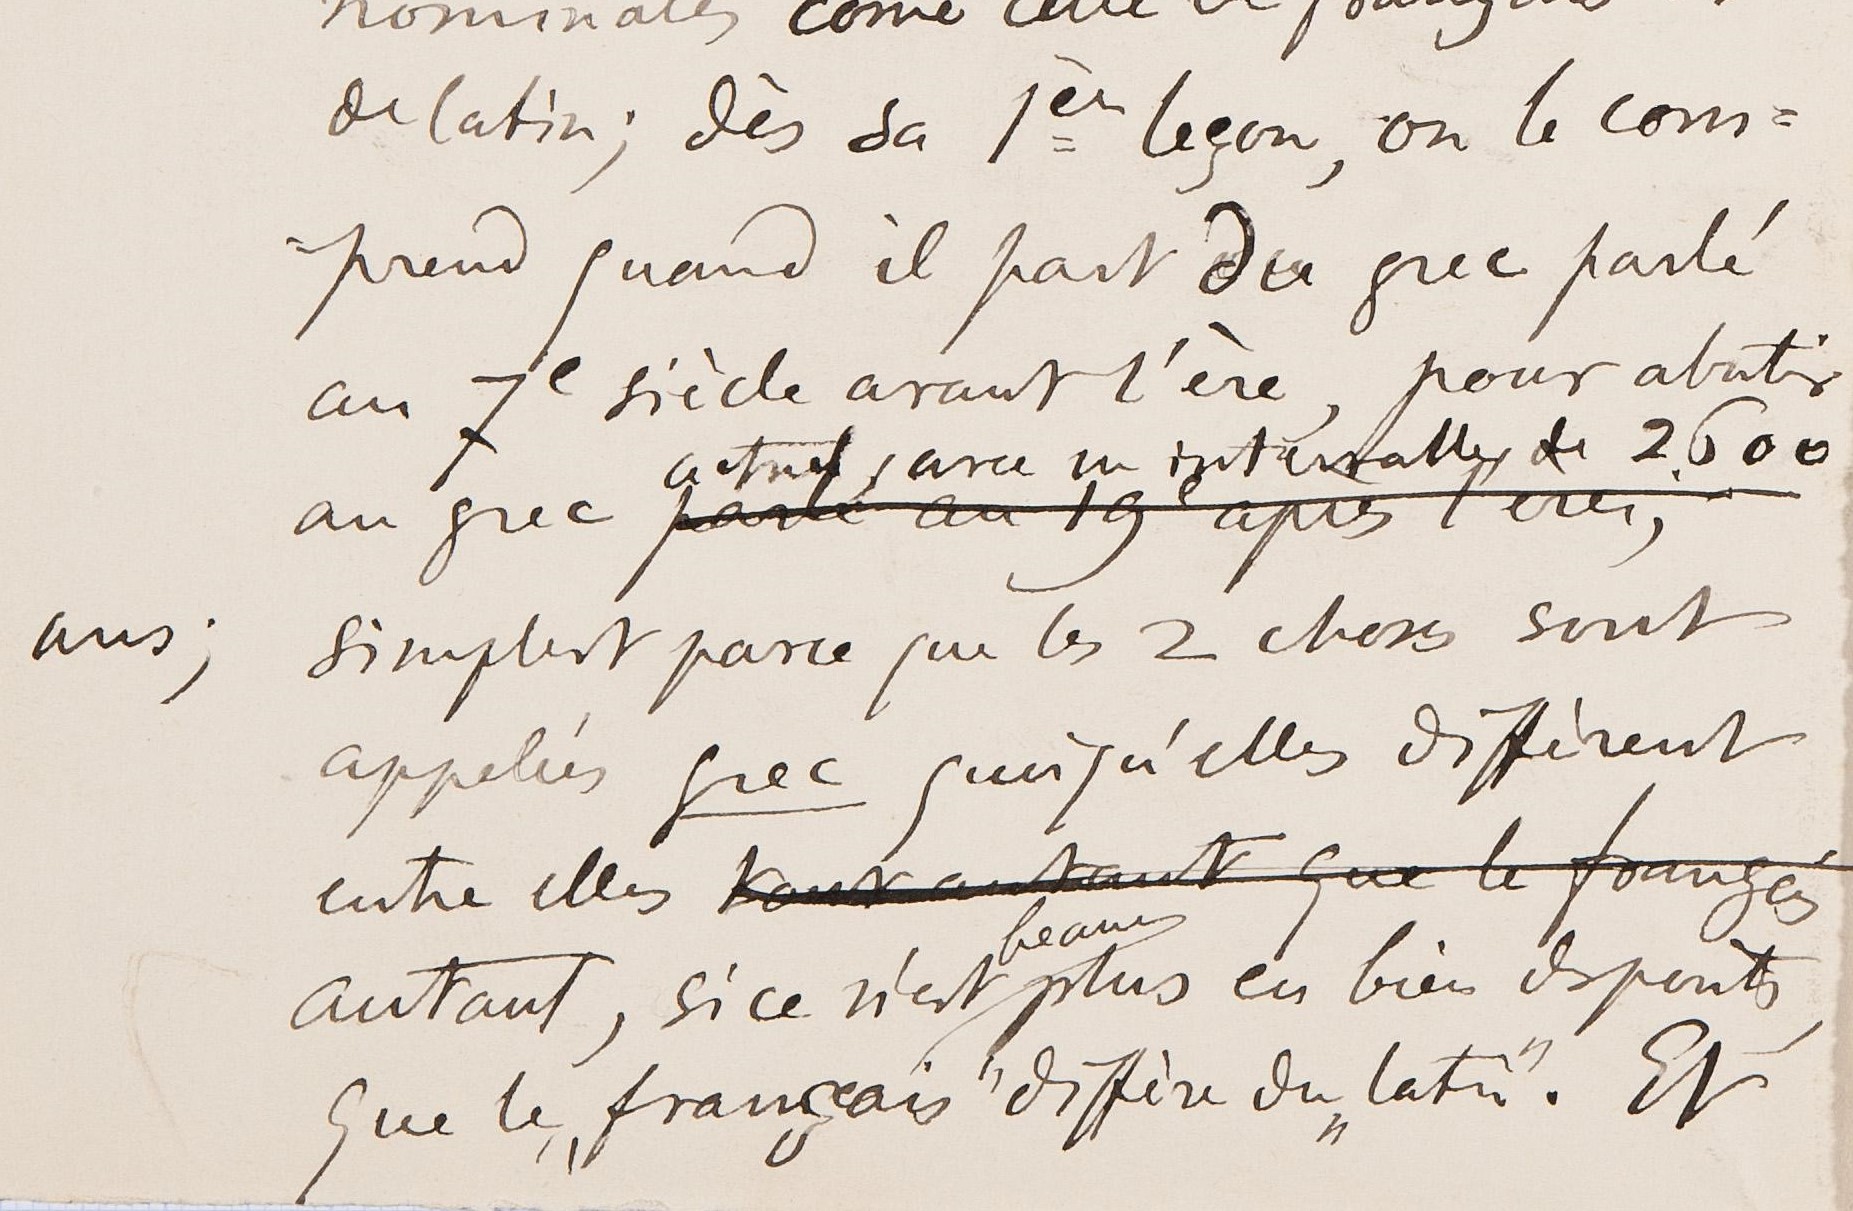 nominales come celle de français
de latin; dès sa 1ère leçon, on le com=
prend quand il part du grec parlé
au 7e siècle avant l'ère, pour aboutir
actuel, avec un intervalle de 2600
au grec parlé au 19e après l'ère;
ans; simplent parce que les 2 choses sont
appelées grec quoiqu'elles diffèrent
entre elles tout autant que le français
beauc
autant, si ce n'est plus en bien des points,
que le „français" diffère du „latin". Et